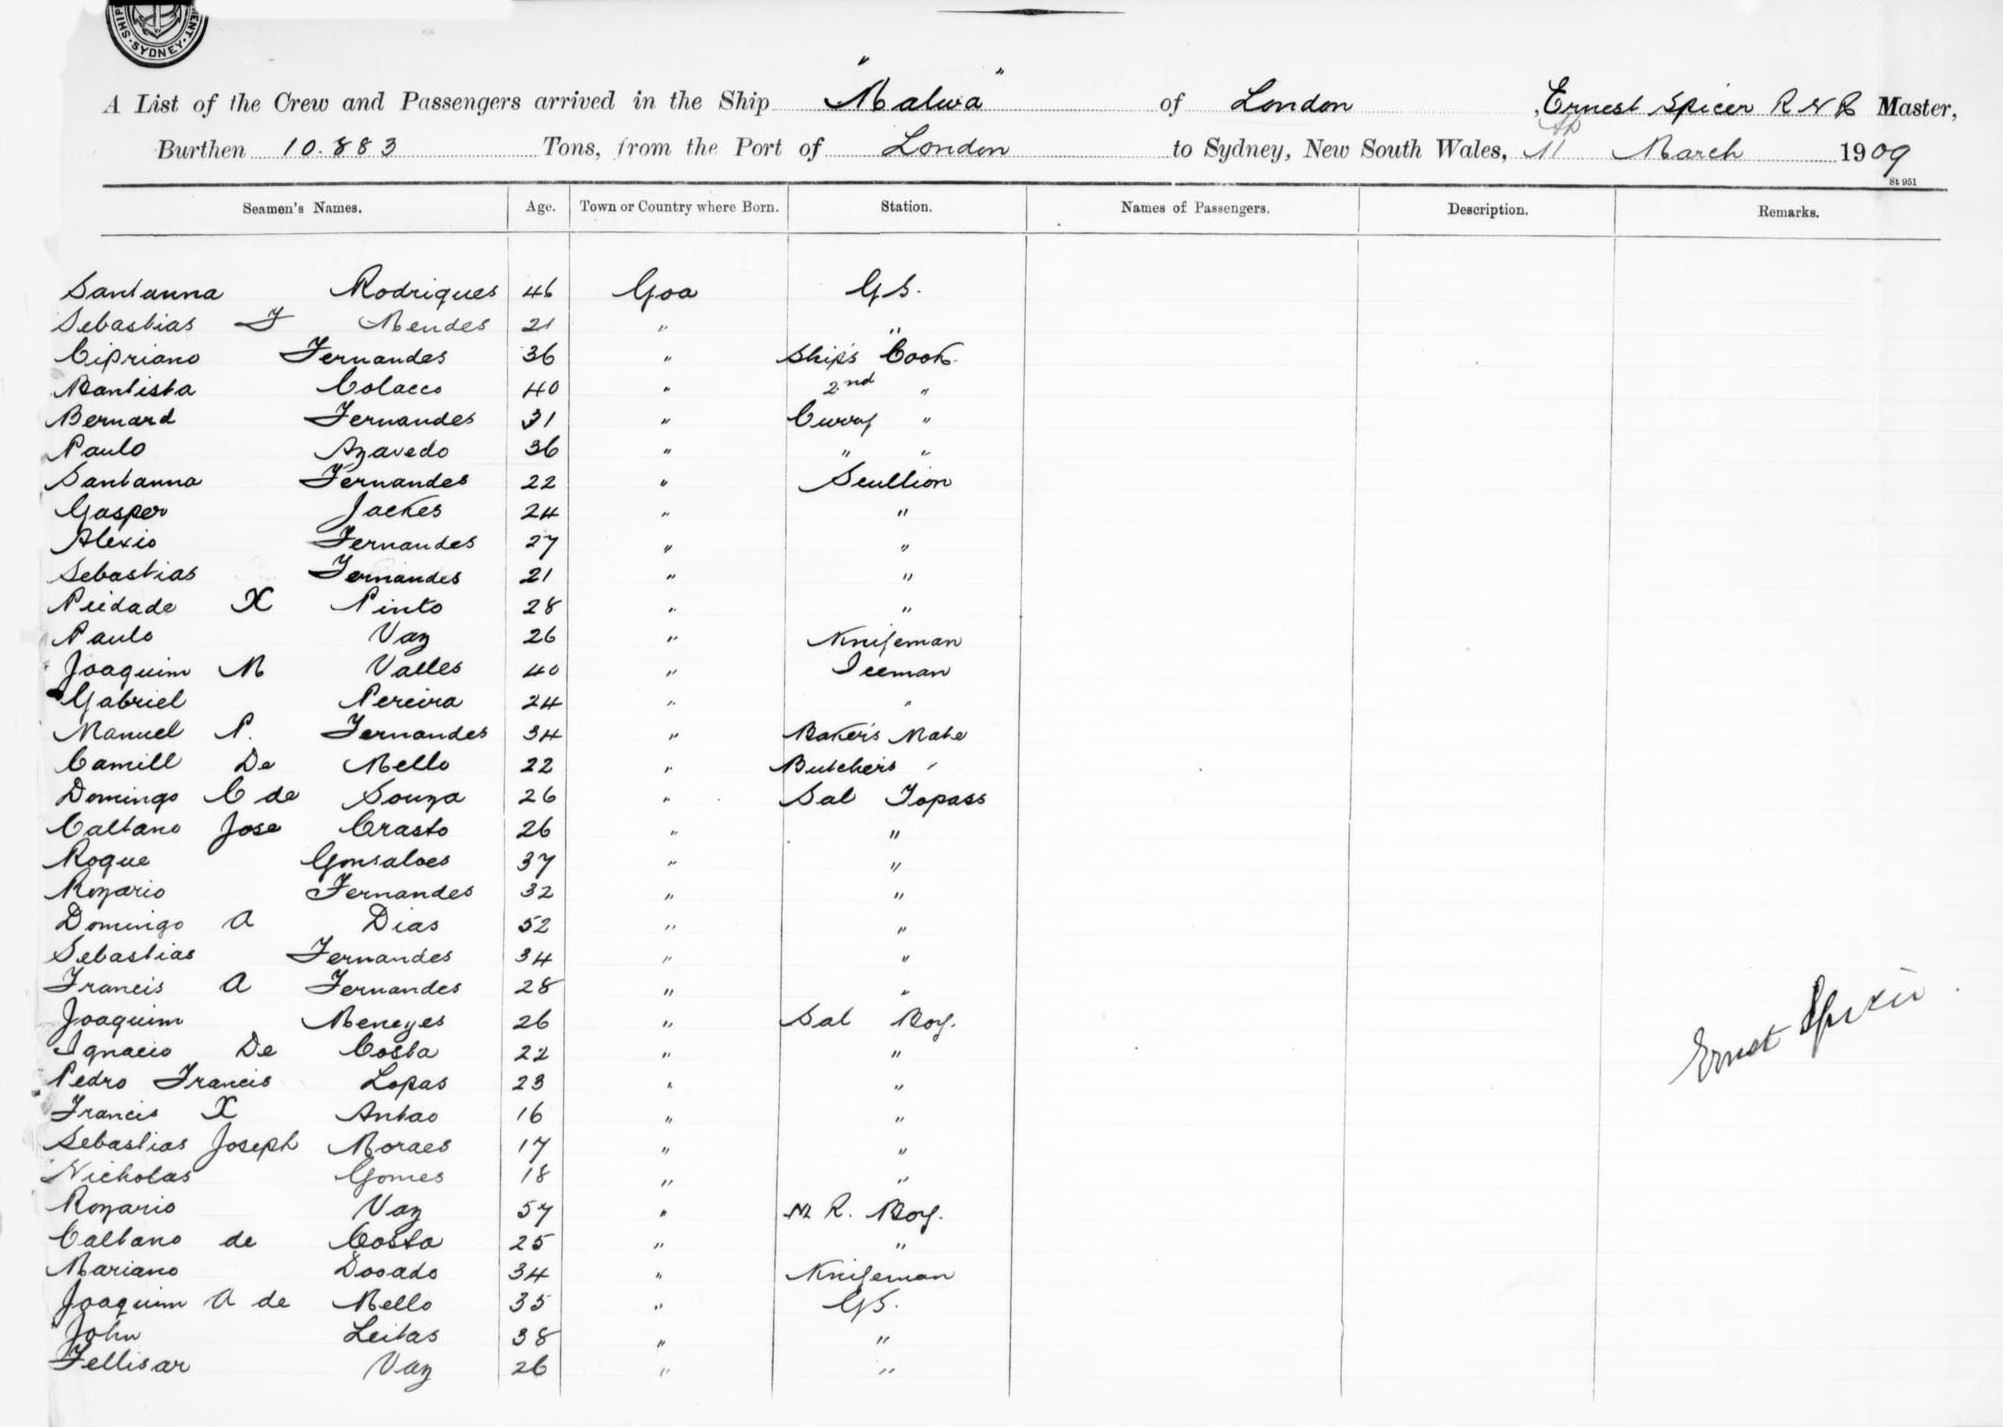 SHIPPING SYDNEY
A List of the Crew and Passengers arrived in the Ship "Malwa" of London, Ernest Spicer R N R Master,
Burthen 10.883 Tons, from the Port of London to Sydney, New South Wales, 11th March 1909
St 951
Seamen's Names. Age. Town or Country where Born. Station. Names of Passengers. Description. Remarks.
Santanna Rodriques 46 Goa G S.
Sebastias F Mendes 21 " "
Cipriano Fernandes 36 " Ship's Cook.
Bautista Colacco 40 " 2nd "
Bernard Fernandes 31 " Curry "
Paulo Azavedo 36 " " "
Santanna Fernandes 22 " Scullion
Gasper Jackes 24 " "
Alexio Fernandes 27 " "
Sebastias Fernandes 21 " "
Piedade X Pinto 28 " "
Paulo Vaz 26 " Knifeman
Joaquim M Valles 40 " Iceman
Gabriel Pereira 24 " "
Manuel P. Fernandes 34 " Baker's Mate
Camill De Mello 22 " Butchers "
Domingo C de Souza 26 " Sal Topass
Caltano Jose Crasto 26 " "
Roque Gonsaloes 37 " "
Rozario Fernandes 32 " "
Domingo A Dias 52 " "
Sebastias Fernandes 34 " "
Francis A Fernandes 28 " "
Joaquim Menezes 26 " Sal Boy.
Ignacio De Costa 22 " "
Pedro Francis Lopas 23 " "
Francis X Antao 16 " "
Sebastias Joseph Moraes 17 " "
Nicholas Gomes 18 " "
Rozario Vaz 57 " M R. Boy.
Caltano de Costa 25 " "
Mariano Dosado 34 " Knifeman
Joaquim A de Mello 35 " G S.
John Leitas 38 " "
Fellisar Vaz 26 " "
Ernest Spicer